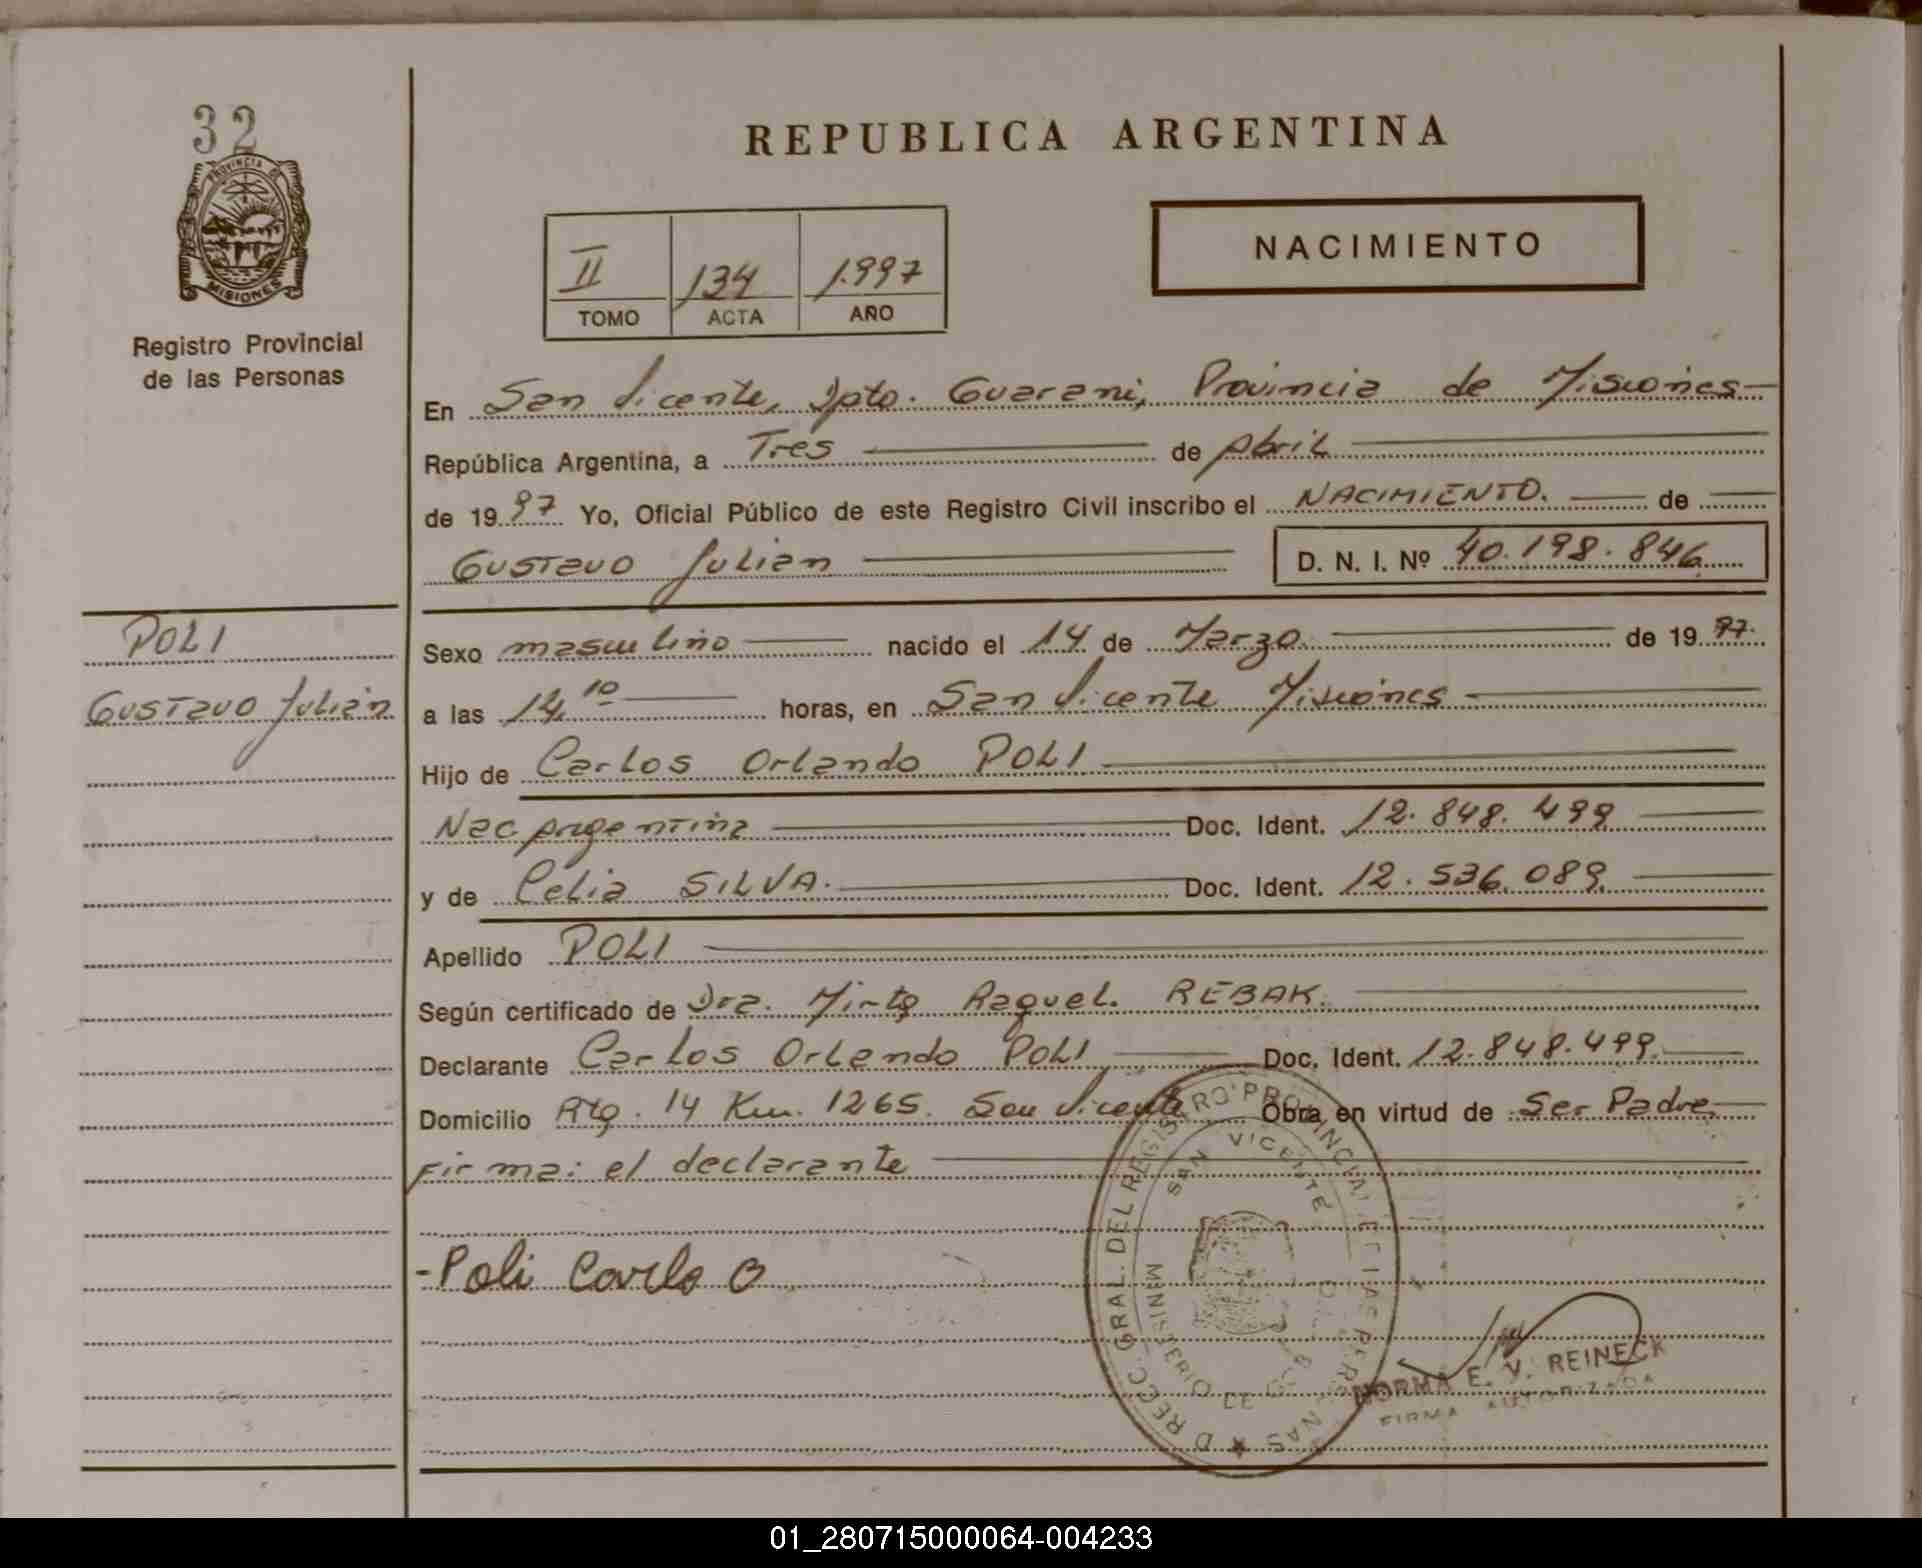 32
PROVINCIA DE
MISIONES
Registro Provincial
de las Personas
REPUBLICA ARGENTINA
II 134 1.997
TOMO ACTA AÑO
NACIMIENTO
En San Vicente, Dpto. Guarani, Provincia de Misiones
República Argentina, a Tres de Abril
de 1997 Yo, Oficial Público de este Registro Civil inscribo el NACIMIENTO. de
Gustavo Julian D. N. I. Nº 40.198.846
POLI
Gustavo Julián
Sexo masculino nacido el 14 de Marzo. de 1997.
a las 14,10 horas, en San Vicente Misiones
Hijo de Carlos Orlando POLI
Nac Argentina Doc. Ident. 12.848.499
y de Celia SILVA. Doc. Ident. 12.536.089.
Apellido POLI
Según certificado de Dra. Mirta Raquel. REBAK.
Declarante Carlos Orlando POLI Doc. Ident. 12.848.499.
Domicilio Rta. 14 Km. 1265. San Vicente Obra en virtud de Ser Padre
Firma: el declarante
-Poli Carlo O
DIRECC. GRAL. DEL REGISTRO PROVINCIAL DE LAS PERSONAS
SAN VICENTE
MINISTERIO DE
NORMA E. V. REINECK
FIRMA AUTORIZADA
01_280715000064-004233